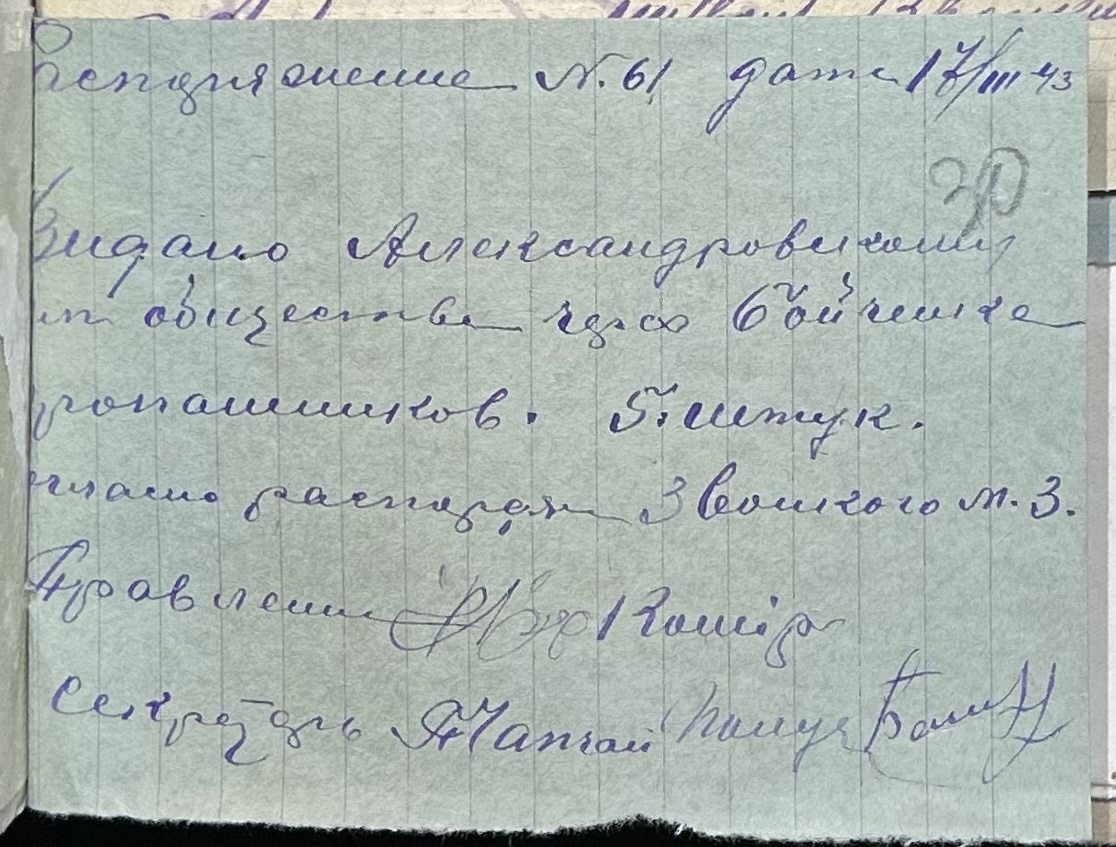 Распоряжение №. 61 дата 17/III 43
30
Видано Александровскому
общества через Бойченка
пропашников. 5. штук.
согласно распоряж Звонкого М. З.
Правления Кошір
Секретарь Чапгай